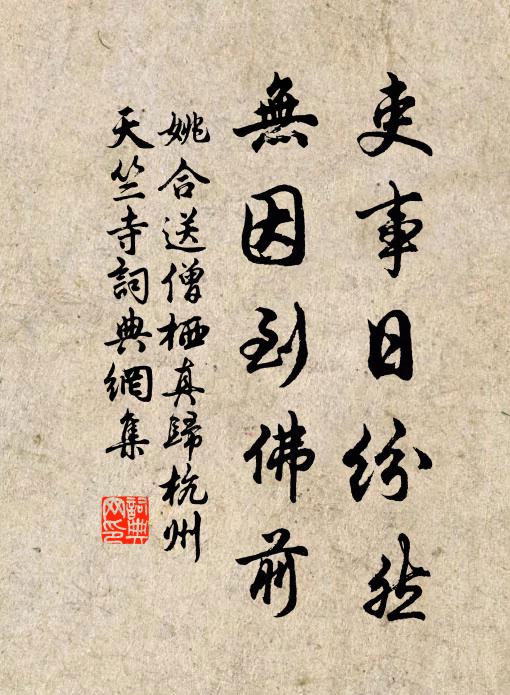 吏事日紛然
無因到佛前
姚合送僧栖真歸杭州
天竺寺詞典網集
詞典
网印